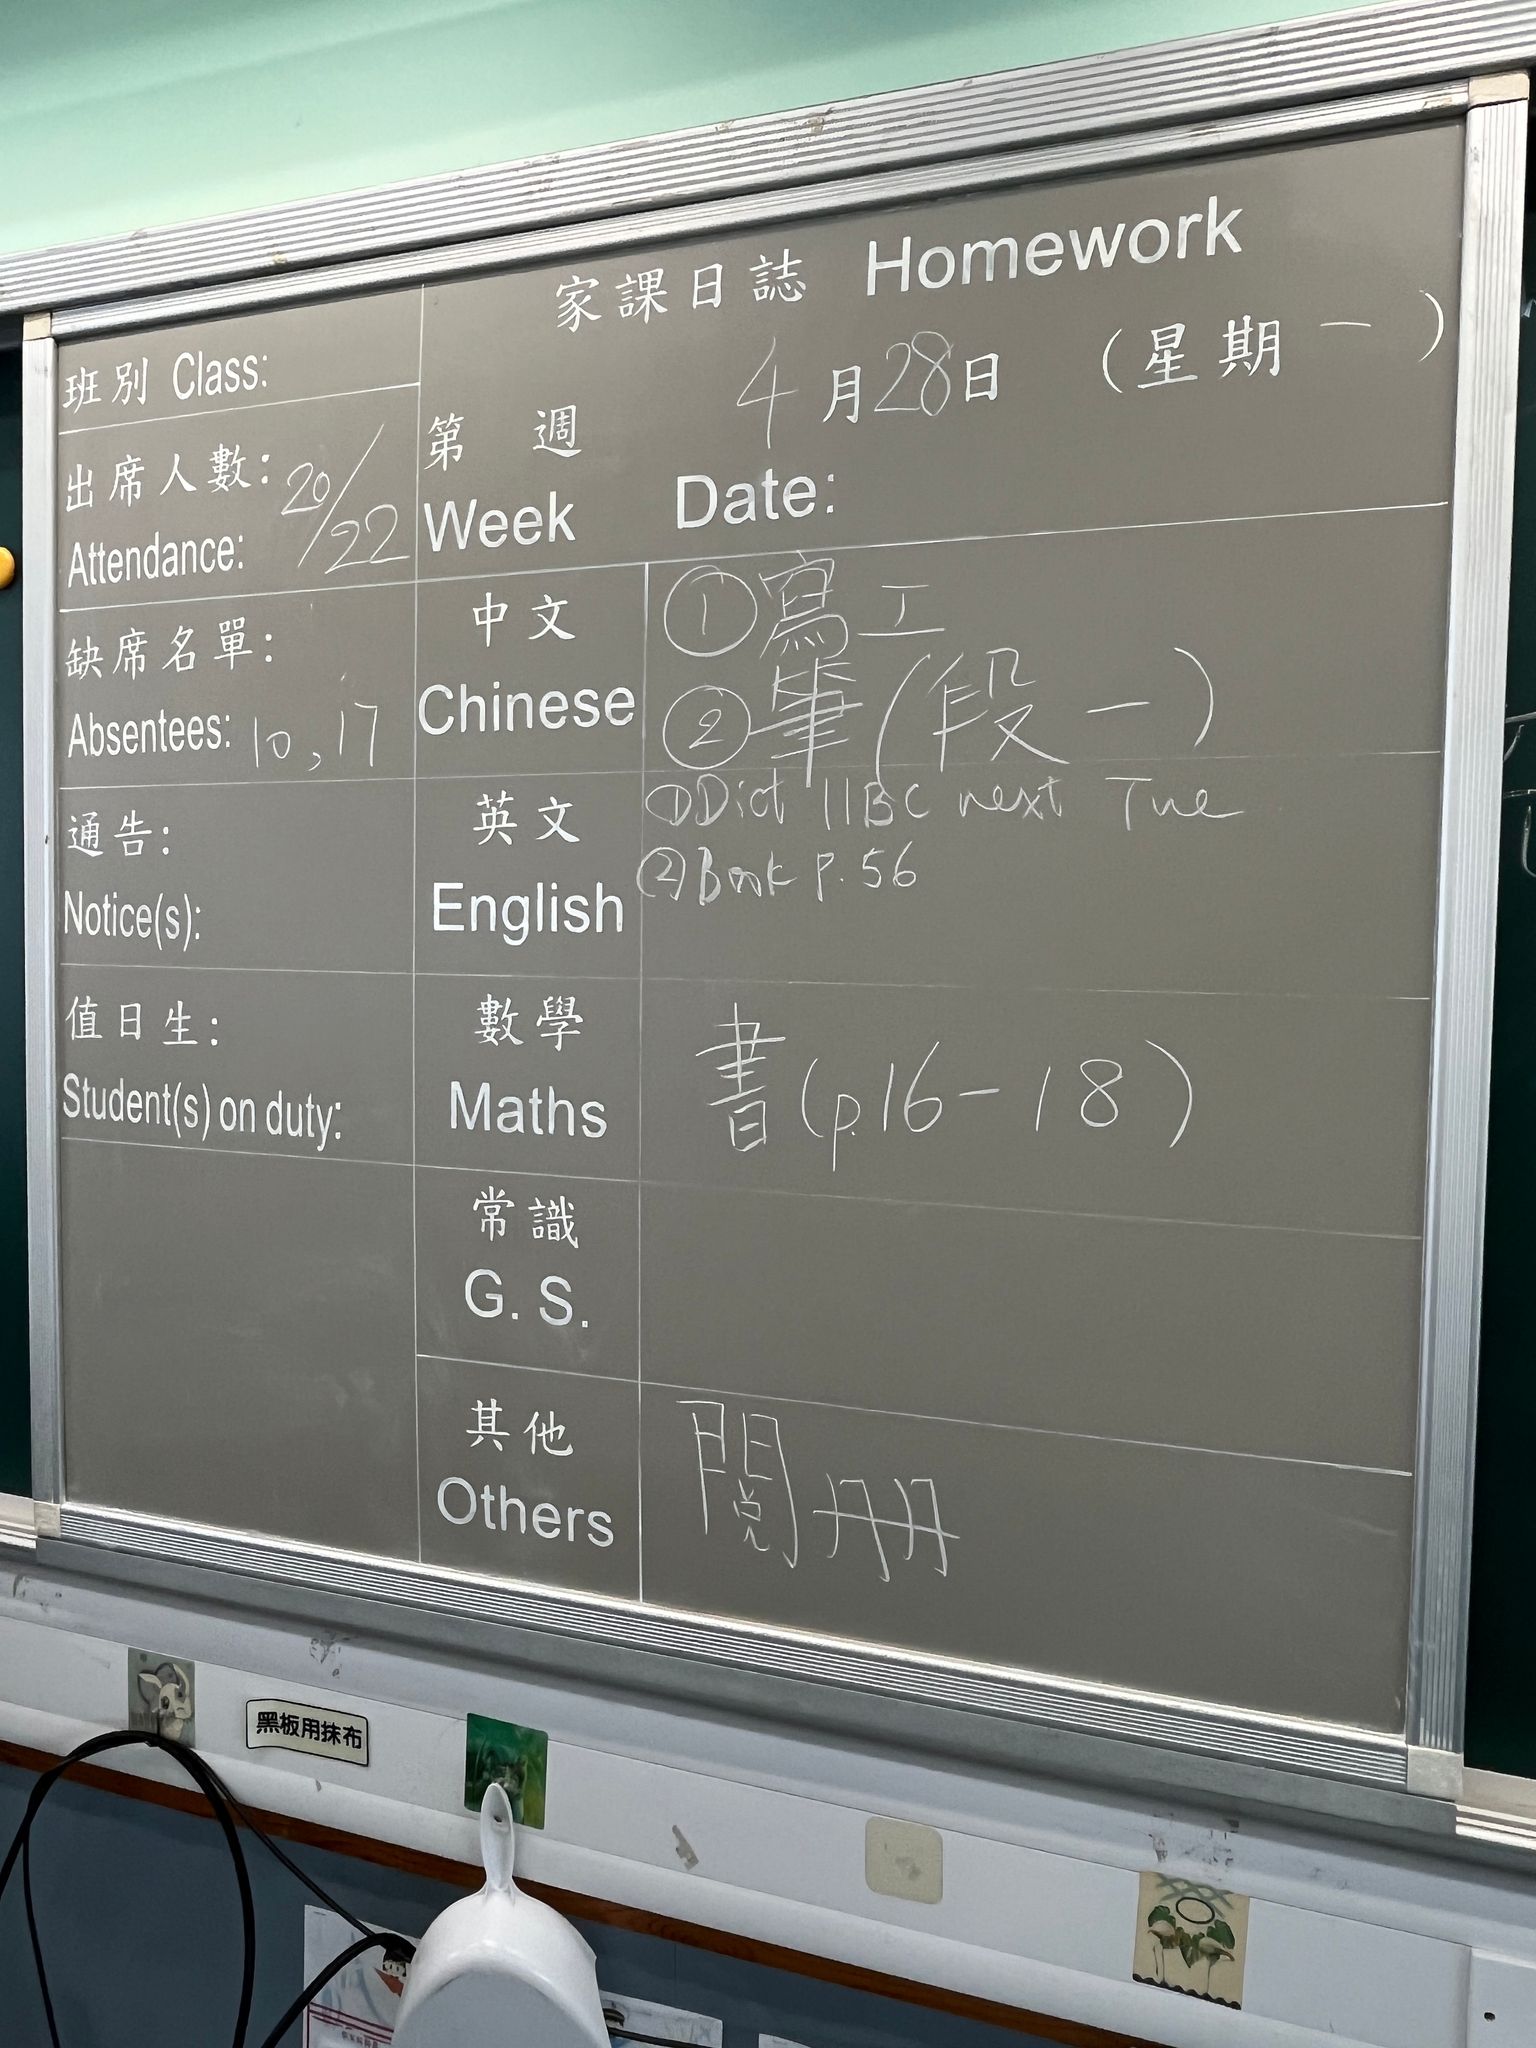 家課日誌 Homework
班別 Class:
4月28日 (星期一)
第 週
Week
Date:
出席人數:
Attendance: 20/22
缺席名單:
Absentees: 10, 17
通告:
Notice(s):
值日生:
Student(s) on duty:
中文
Chinese
①寫工
②筆(段一)
英文
English
①Dict 11BC next Tue
②Book P.56
數學
Maths
書(p.16-18)
常識
G. S.
其他
Others
閱冊
黑板用抹布